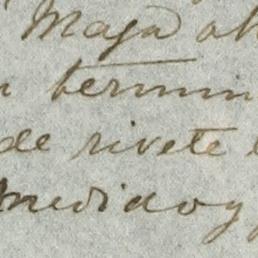 Maja
termin
de rivete
medido y